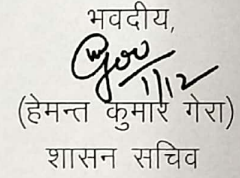 भवदीय,
1/12
(हेमन्त कुमार गेरा)
शासन सचिव